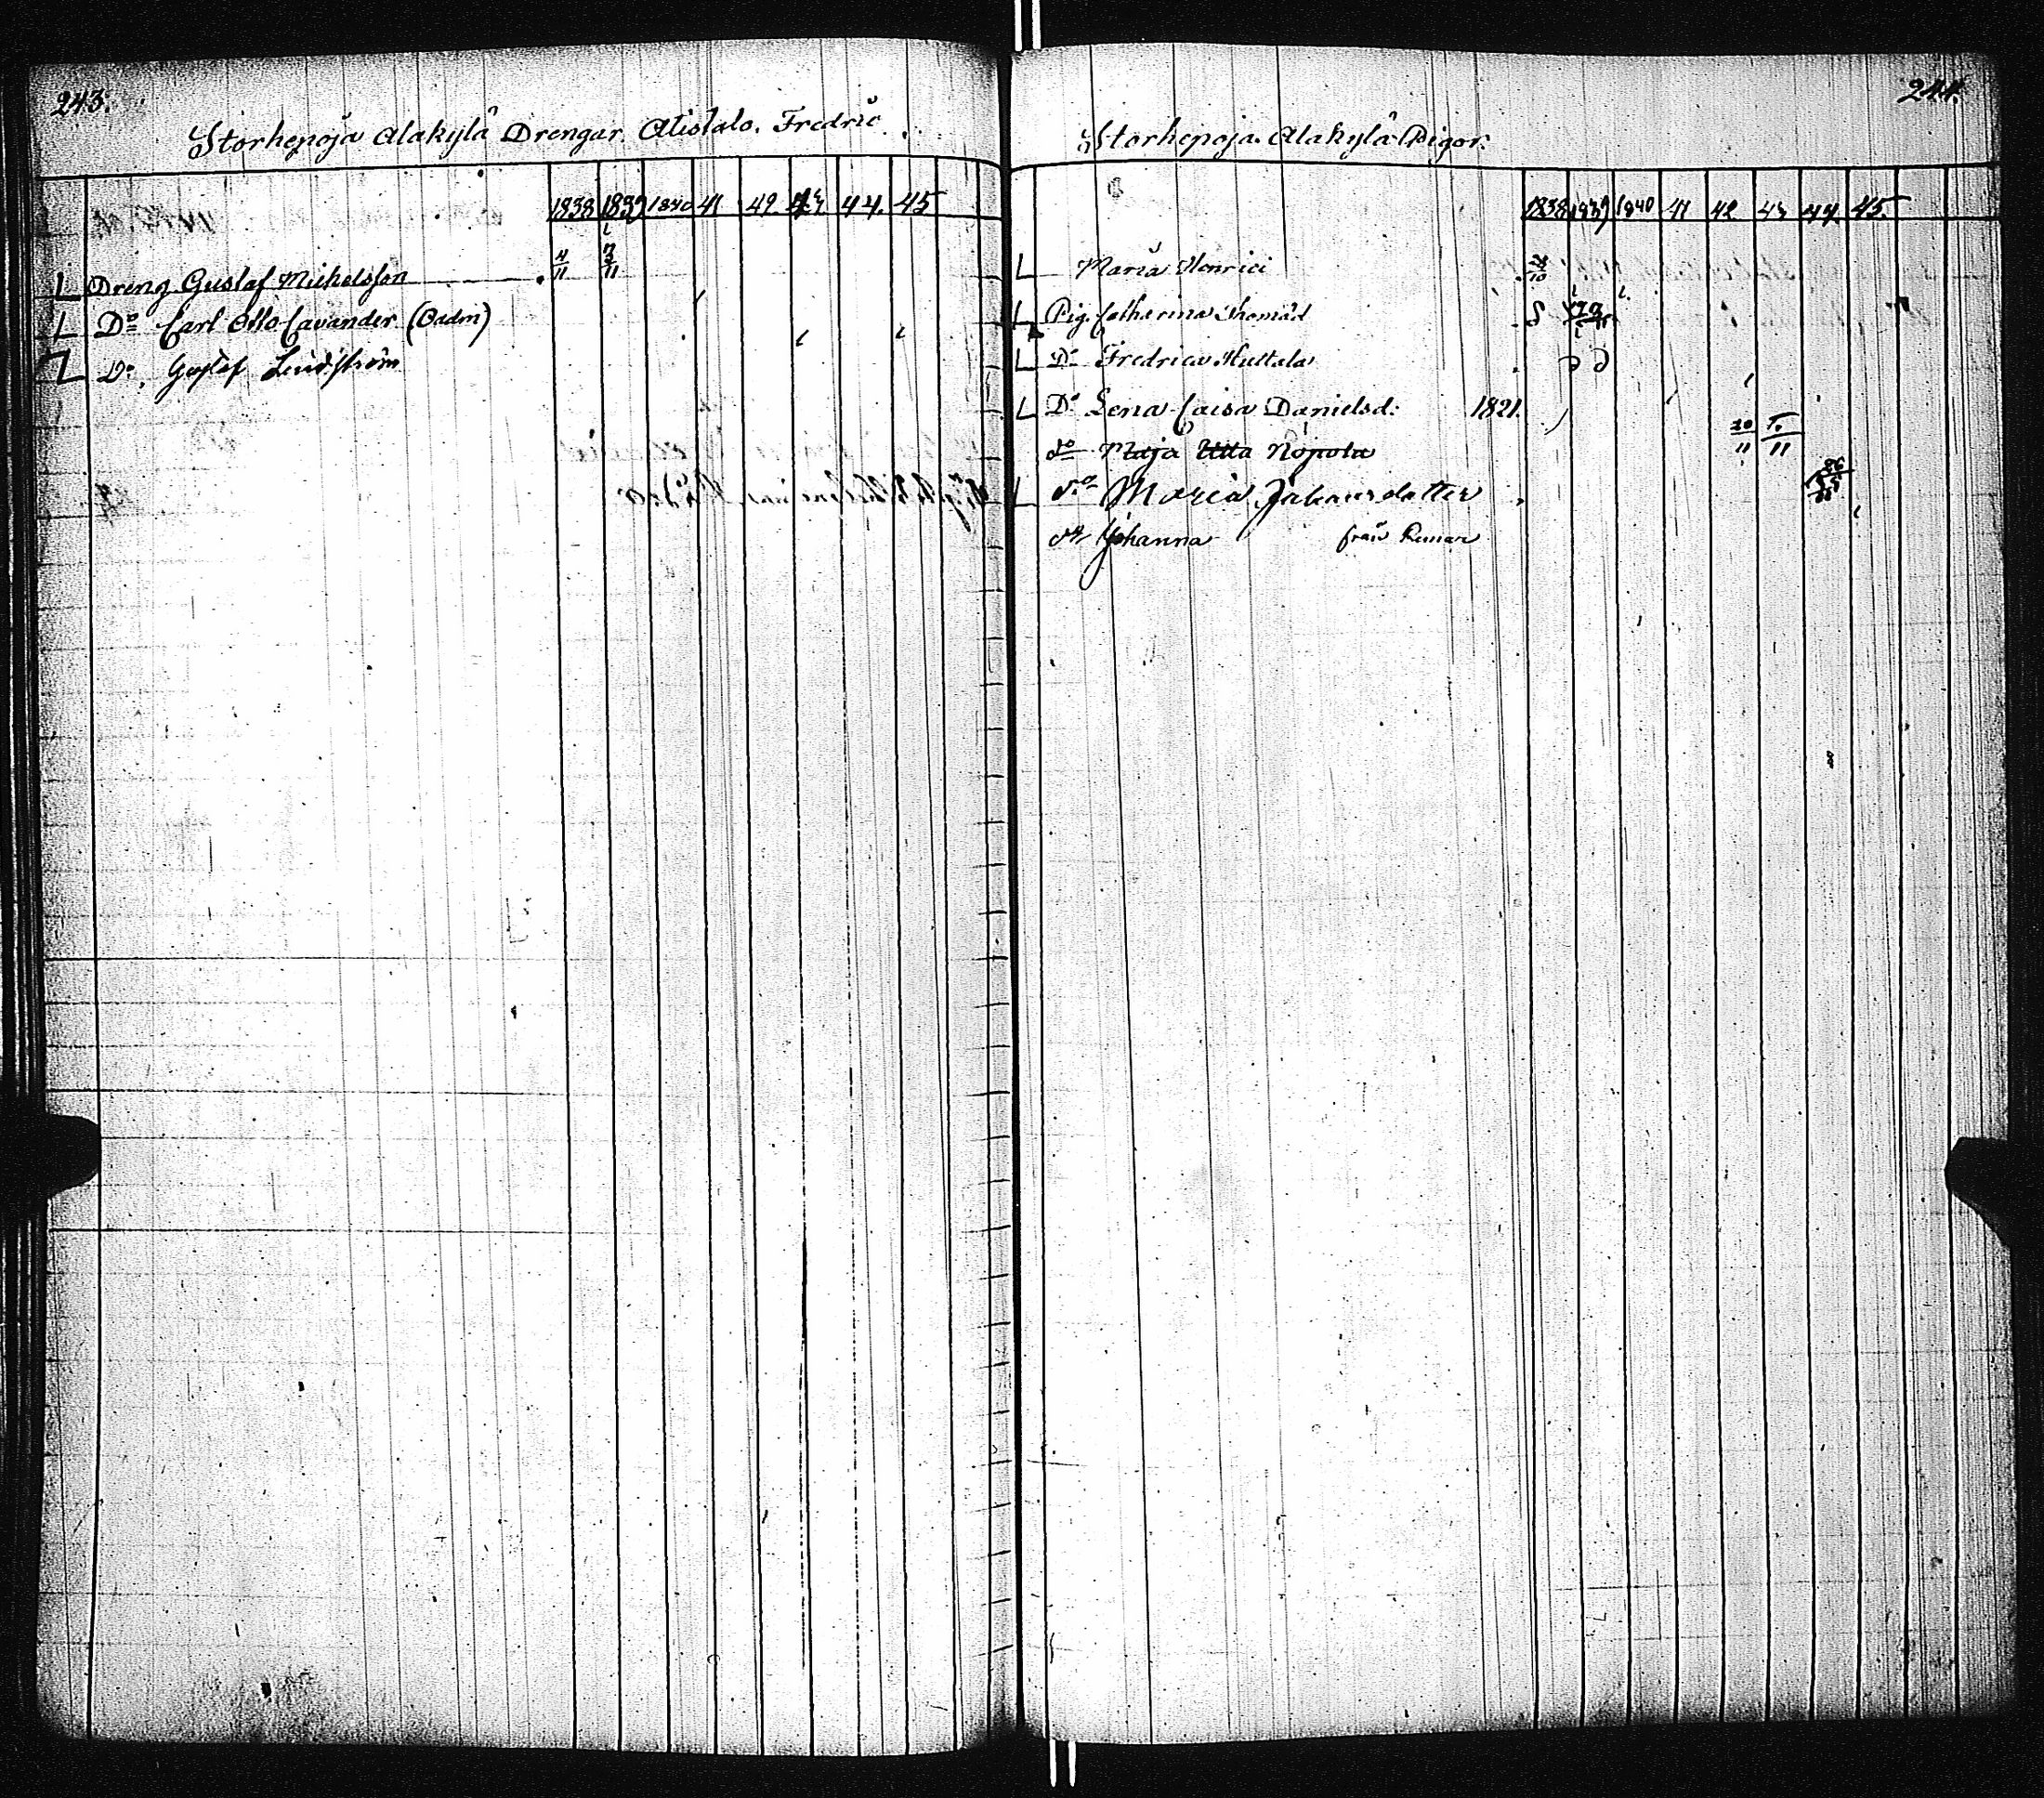 243.
Storhepoja Alakylä Drengar. Alistalo. Fredric
1838 1839 1840 41 42. 43 44. 45
4/11 7/11
Dreng Gustaf Michelsson
Do Carl Otto Cavander (Oadm)
Do. Gustaf Lindström
244.
Storhepoja Alakylä Pigor.
1838 1839 1840 41 42 43 44 45
Maria Henrici
Pig. Catharina Thomæd
Do Fredrica Huttala
Do Lena Caisa Danielsd: 1821.
do Maja Ulla Nopola 20/11
do Maria Johansdotter
do Johanna från